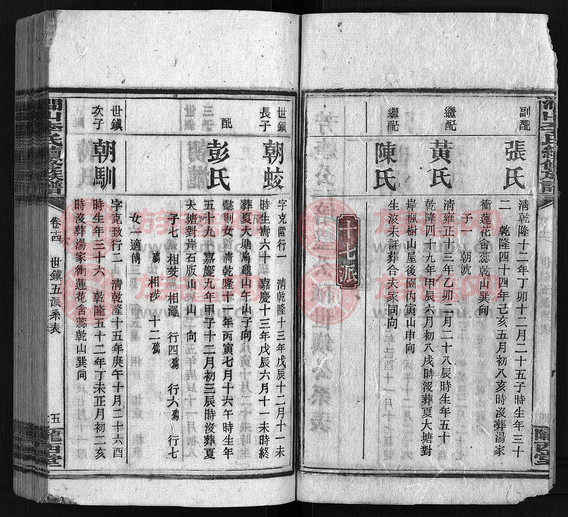 副配
張氏
清乾隆十二年丁卯十二月二十五子時生年三十
二乾隆四十四年己亥五月初八亥時沒葬湯家
衝蓮花舍蕊乾山巽向
子一 朝
繼配
黃氏
清雍正十三年乙卯二月二十八辰時生年五十
乾隆四十九年甲辰六月初八戌時沒葬夏大塘對
岸楓樹山屋後園丙寅山申向
繼配
陳氏
生沒未詳葬合夫家同向
十七派
世鎮
長子
朝蛟
字克陞行一 清乾隆十三年戊辰十二月十一未
時生壽六十一嘉慶十三年戊辰六月十一未時終
葬夏大塘龜山午山子向
配
彭氏
勳則女 清乾隆十一年丙寅七月十六午時生年
五十九嘉慶九年甲子十二月初三辰時沒葬夏
大塘對岸石版山 山 向
子七 相 相 行四 行七
相涉 十二
女一適傅
世鎮
次子
朝馴
字克致行二 清乾隆十五年庚午十月二十六酉
時生年三十六 乾隆五十二年丁未正月初二亥
時沒葬湯家衝蓮花舍蕊乾山巽同向
卷十四 世鎮五派系表
五
隴西堂